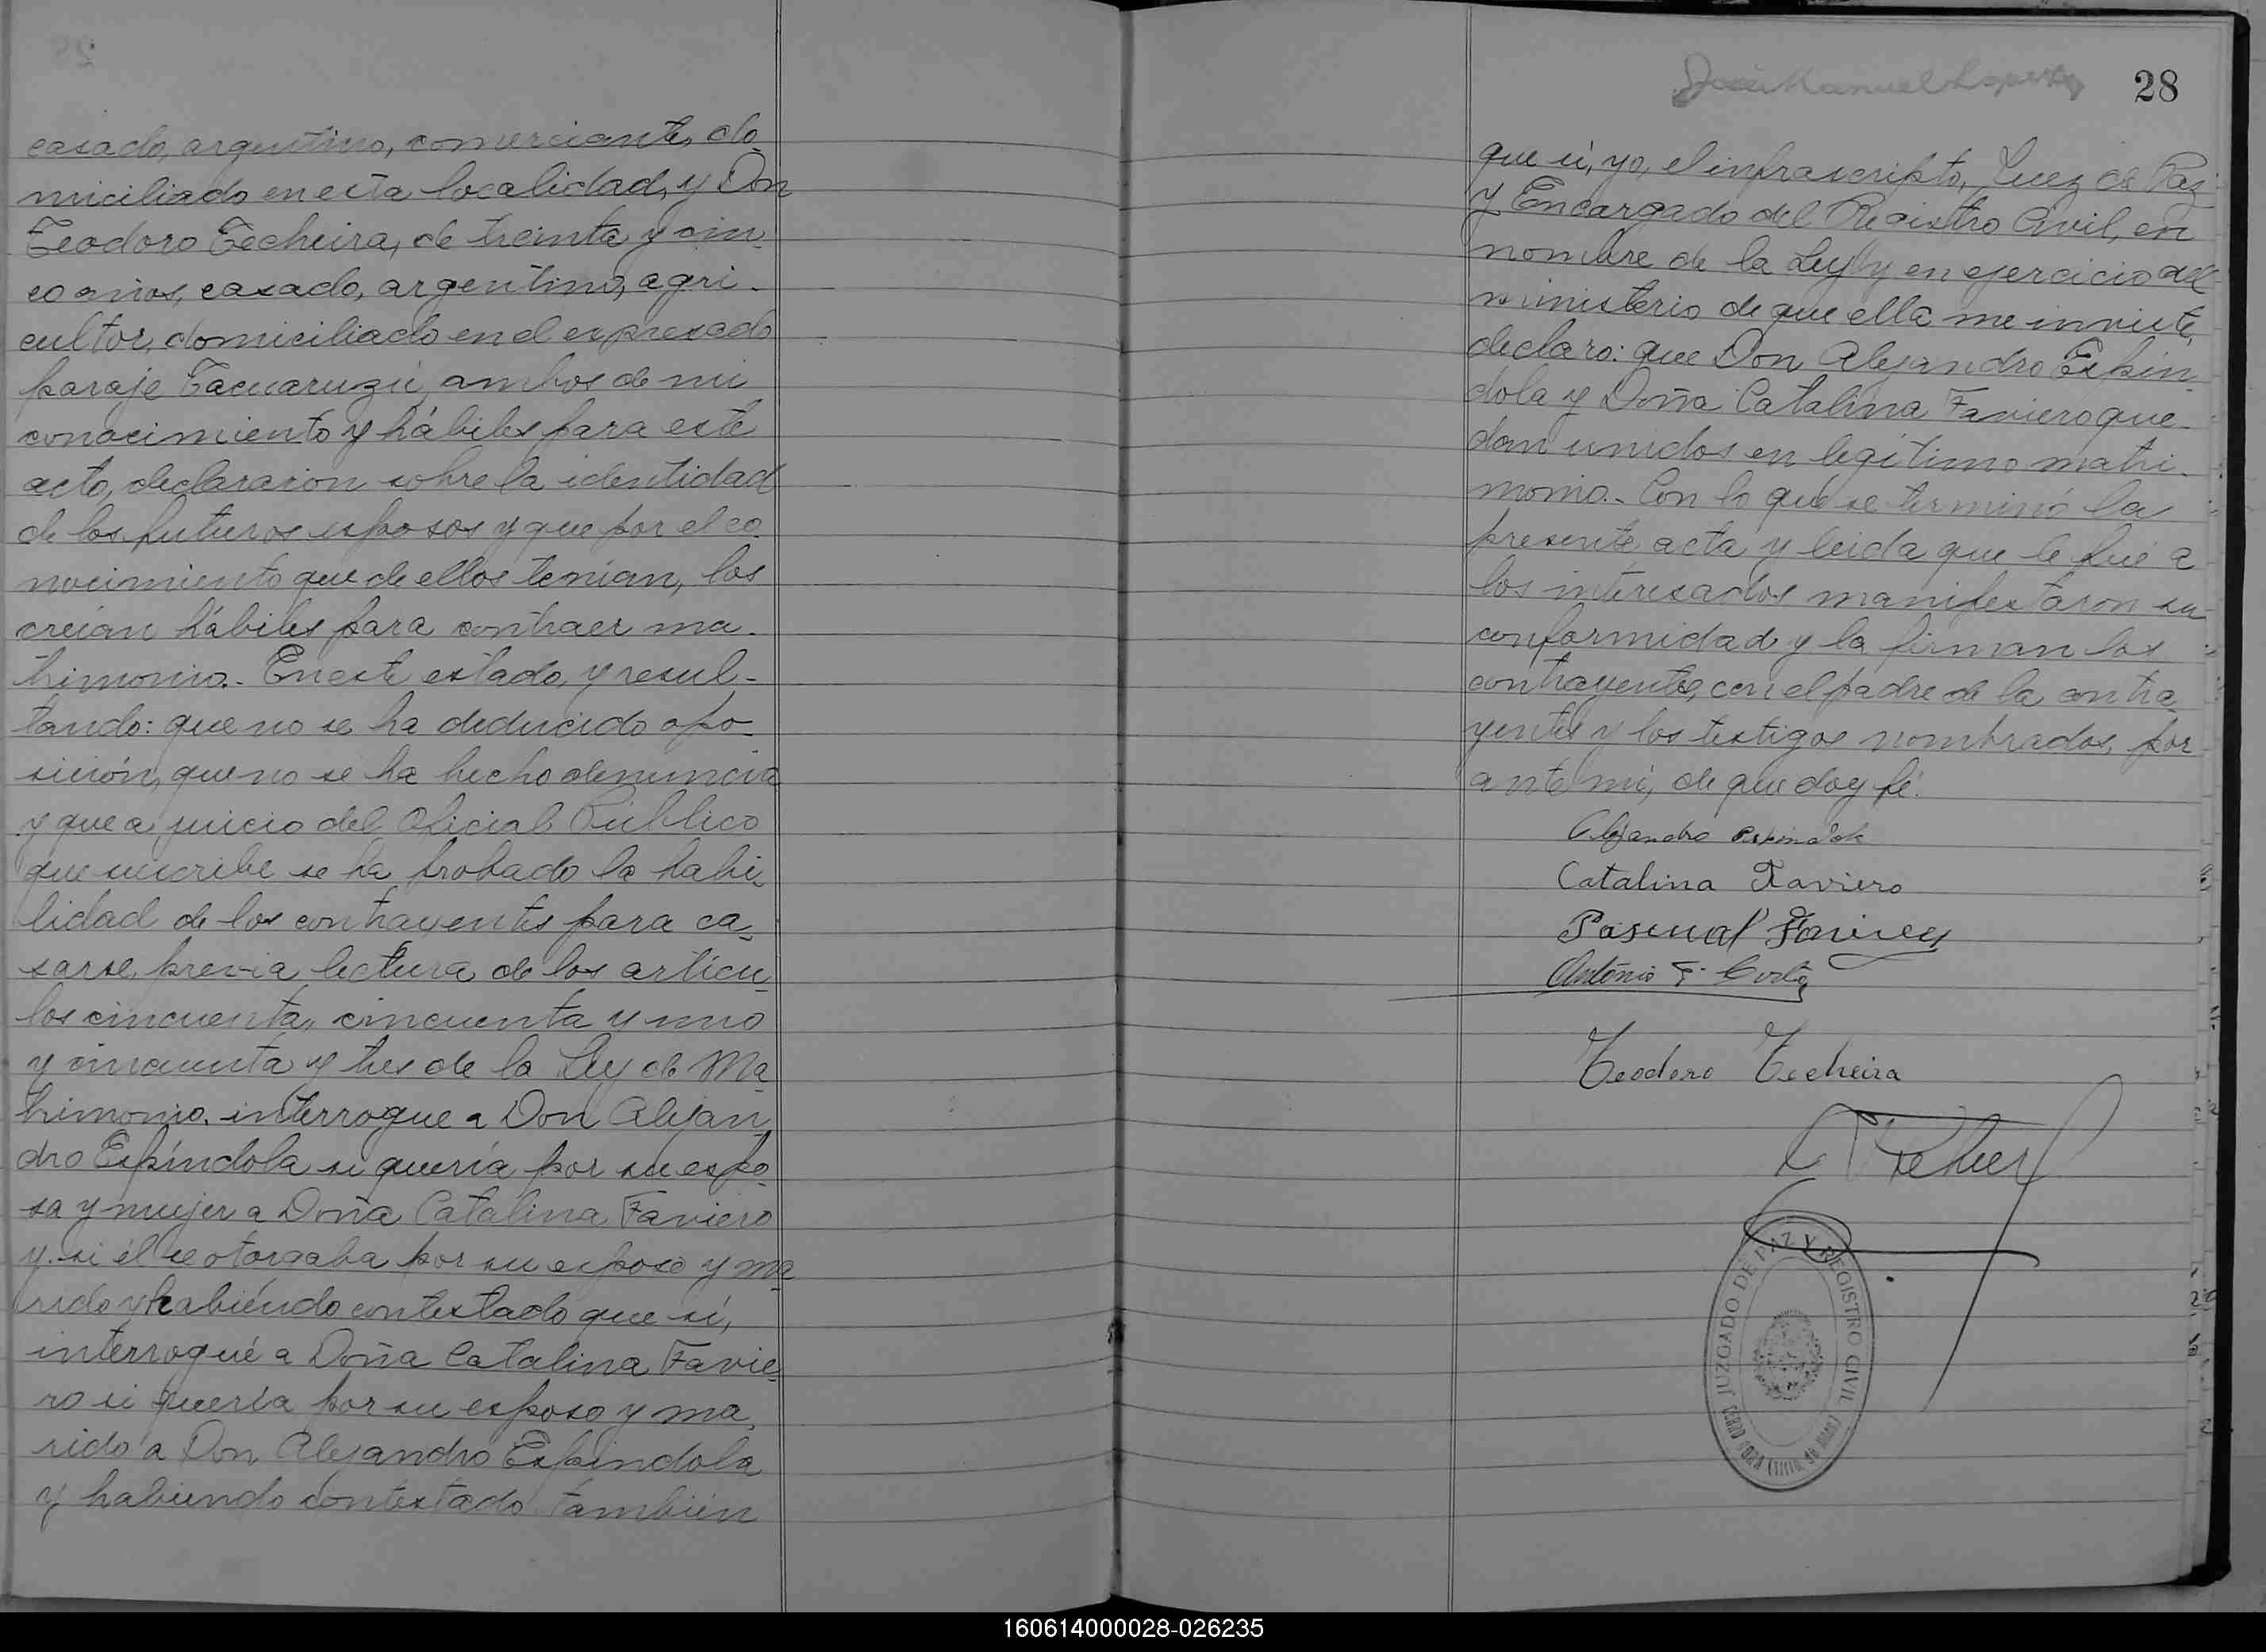 casado, argentino, comerciante, do-
miciliado en esta localidad, y Don
Teodoro Techeira, de treinta y cin-
co años, casado, argentino, agri-
cultor, domiciliado en el expresado
paraje Tacuaruzú, ambos de mi
conocimiento y hábiles para este
acto, declararon sobre la identidad
de los futuros esposos y que por el co-
nocimiento que de ellos tenían, los
creían hábiles para contraer ma-
trimonio.- En este estado, y resul-
tando: que no se ha deducido opo-
sición, que no se ha hecho denuncia
y que a juicio del Oficial Público
que suscribe se ha probado la habi-
lidad de los contrayentes para ca-
sarse, previa lectura de los artícu-
los cincuenta, cincuenta y uno
y cincuenta y tres de la Ley de Ma-
trimonio, interrogue a Don Alejan-
dro Espíndola si quería por su espo-
sa y mujer a Doña Catalina Faviero
y si él se otorgaba por su esposo y ma-
rido y habiéndo contestado que sí,
interrogué a Doña Catalina Favie-
ro si quería por su esposo y ma-
rido a Don Alejandro Espíndola
y habiendo contestado también
28
que sí, yo, el infrascripto, Juez de Paz
y Encargado del Registro Civil, en
nombre de la Ley y en ejercicio del
ministerio de que ella me inviste,
declaro: que Don Alejandro Espín-
dola y Doña Catalina Faviero que-
dan unidos en legítimo matri-
monio.- Con lo que se terminó la
presente acta y leida que le fué a
los interesados manifestaron su
conformidad y la firman los
contrayentes, con el padre de la contra-
yentes y los testigos nombrados, por
ante mí, de que doy fé.
Alejandro Espindola
Catalina Faviero
Pascual
Antonio F.
Teodoro Techeira
JUZGADO DE PAZ Y REGISTRO CIVIL
CERRO CORÁ
160614000028-026235